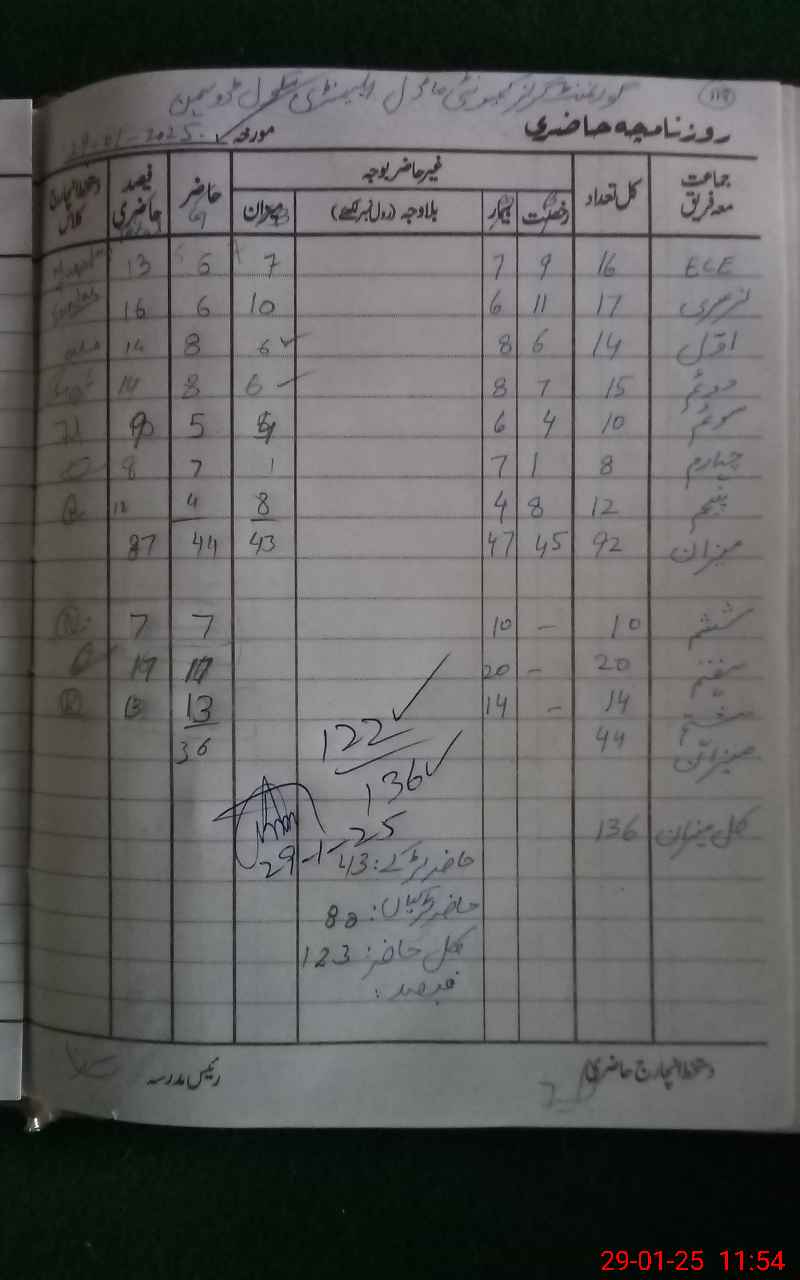 گورنمنٹ گرلز کمیونٹی ماڈل ایلیمنٹری سکول
روزنامچہ حاضری مورخہ 29-01-2025
جماعت معہ فریق کل تعداد غیر حاضر بوجہ حاضر فیصد حاضری دستخط انچارج کلاس
رخصت بیمار بلاوجہ (رول نمبر لکھیے) میزان
ECE 16 9 7 7 6 13
نرسری 17 11 6 10 6 16
اوّل 14 6 8 6 8 14
دوئم 15 7 8 6 8 14
سوئم 10 4 6 5
چہارم 8 1 7 1 7 8
پنجم 12 8 4 8 4 12
میزان 92 45 47 43 44 87
ششم 10 - 10 7 7
ہفتم 20 - 20 17
ہشتم 14 - 14 13 13
میزان 44 36
122
136
کل میزان 136
29-1-25
حاضر لڑکے: 43
حاضر لڑکیاں: 80
کل حاضر: 123
فیصد:
دستخط انچارج حاضری رئیس مدرسہ
29-01-25 11:54